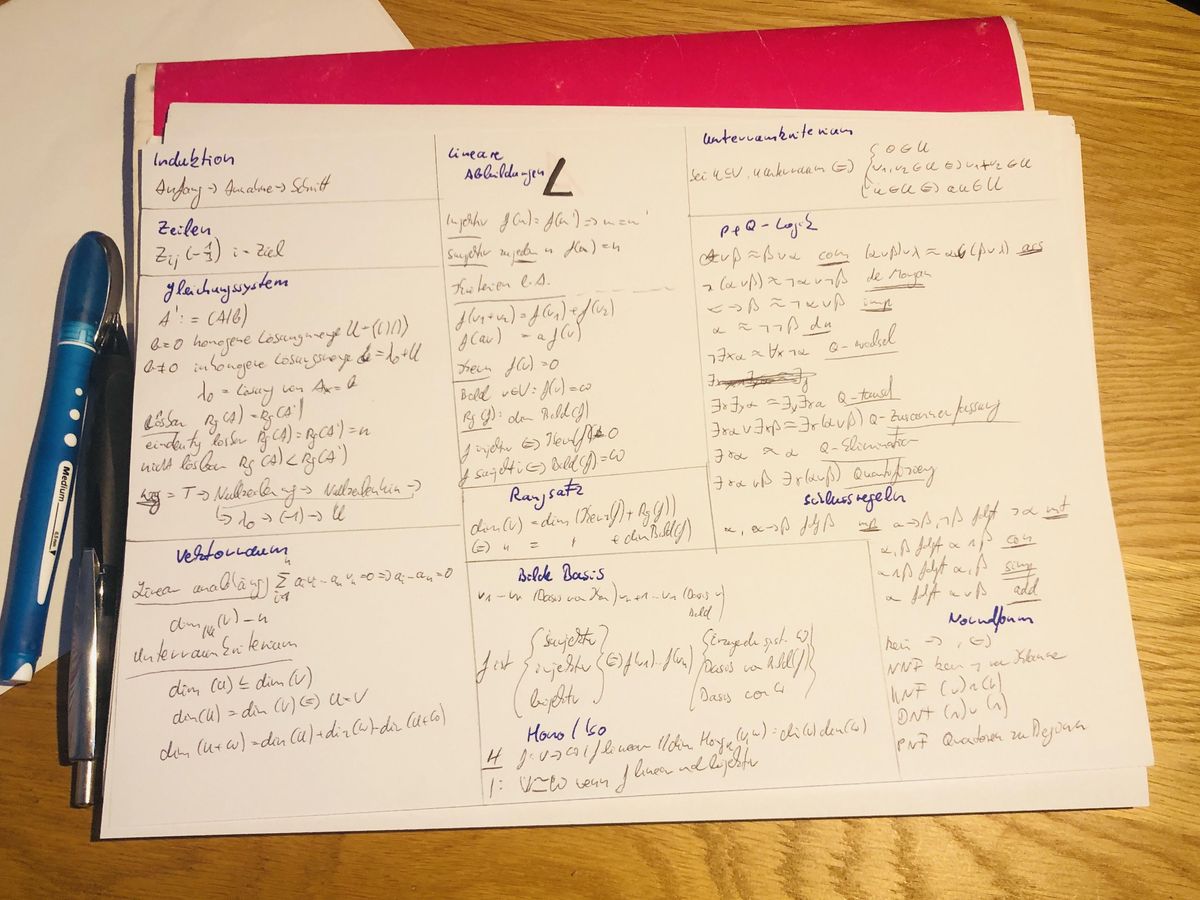 Induktion
Anfang → Annahme → Schritt
Zeilen
Zij(-1/3) i = Ziel
Gleichungssystem
A' := (A|b)
b=0 homogene Lösungsmenge U=
b≠0 inhomogene Lösungsmenge = λ0+U
λ0 = Lösung von Ax = b
Lösbar Rg(A) = Rg(A')
eindeutig lösbar Rg(A) = Rg(A') = n
nicht lösbar Rg(A) < Rg(A')
= T → →
↳ λ0 → (-1) → U
Vektorraum
Linear unabhängig
dim (V) = n
Unterraumkriterium
dim (U) ≤ dim (V)
dim(U) = dim (V) ⇔ U=V
dim (U+W) = dim(U) + dim(W) - dim
Lineare
Abbildungen
L
Injektiv f(u) = f(u') ⇒ u = u'
surjektiv zu jedem n f(m) = n
Kriterien l.A.
f(v1+v2) = f(v1) + f(v2)
f(av) = a f(v)
Kern f(v) = 0
Bild v∈V: f(v) = w
Rg(f): dim Bild(f)
f injektiv ⇔ Kern(f) = 0
f surjektiv ⇔ Bild(f) = W
Rangsatz
dim(V) = dim (Kern(f) + Rg(f))
⇔ n = + dim Bild(f)
Bilde Basis
v1 – vn (Basis von Kern) vn+1 – vn (Basis v)
Bild
f ist { surjektiv
injektiv
bijektiv } ⇔ f(v1) – f(vn) { Erzeugendensyst. W
Basis von Bild(f)
Basis von W }
Homo / Iso
H f: V → W; f linear // dim Hom (V,W) = dim(V) dim(W)
I: V≅W wenn f linear und bijektiv
Unterraumkriterium
Sei U⊆V, U Unterraum ⇔ { 0∈U
v1, v2 ∈ U ⇔ v1+v2 ∈ U
u∈U ⇔ au∈U
P+Q-Logik
α∨β ≈ β∨α com (α∨β)∨λ ≈ α∨(β∨λ) ass
¬(α∨β) ≈ ¬α∨¬β de Morgan
α→β ≈ ¬α∨β imp
α ≈ ¬¬β dn
¬∃xα ≈ ∀x¬α Q-wechsel
∃x∃yα ≈ ∃y∃xα Q-tausch
∃xα∨∃xβ ≈ ∃x(α∨β) Q-Zusammenfassung
∃xα ≈ α Q-Elimination
∃xα∨β ∃x(α∨β) Quantifizierung
Schlussregeln
α, α→β folgt β mp α→β, ¬β folgt ¬α mt
α, β folgt α∧β con
α∧β folgt α, β simp
α folgt α∨β add
Normalform
kein →, ⇔
NNF kein ¬ vor Klammer
KNF (∨)∧(∨)
DNF (∧)∨(∧)
PNF Quantoren zu Beginn
Medium